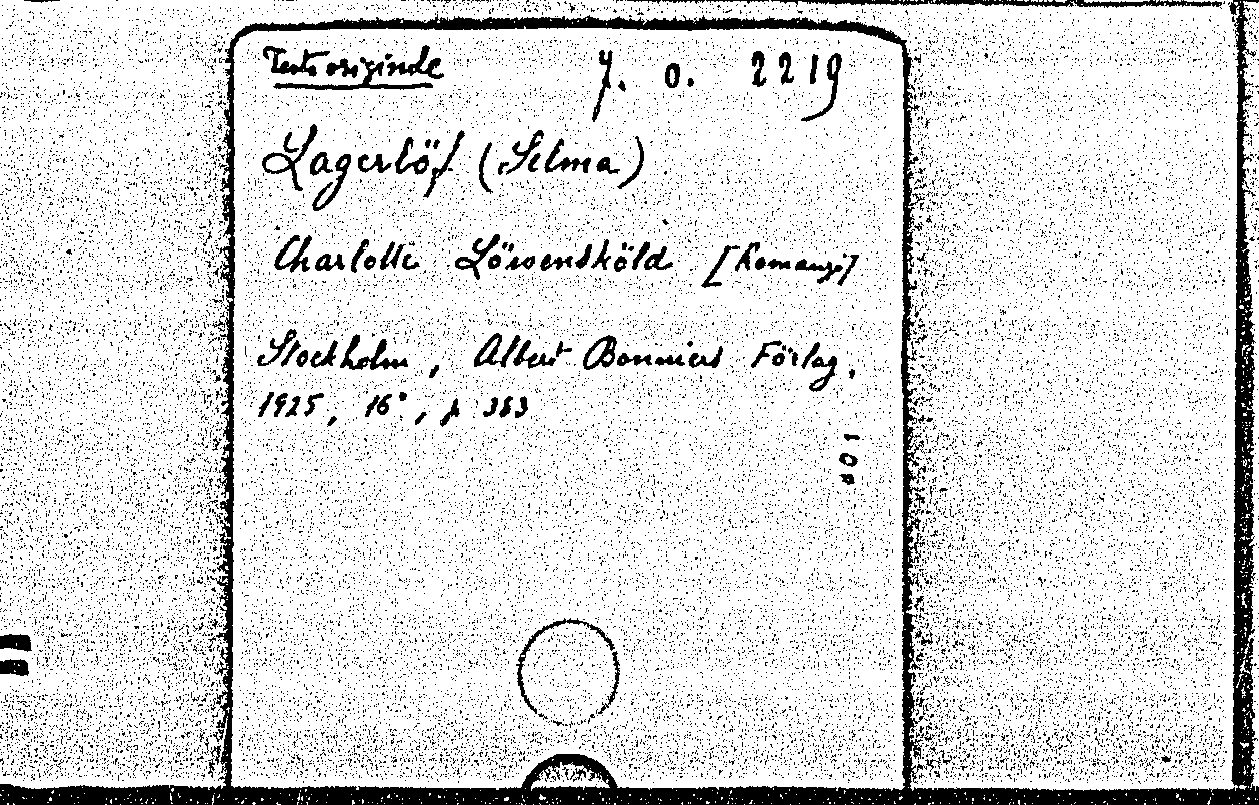 Testo originale
7. 0. 2219
Lagerlöf (Selma)
Charlotte Löwensköld [Romanzo]
Stockholm, Albert Bonniers Förlag,
1925, 16°, p 383
401